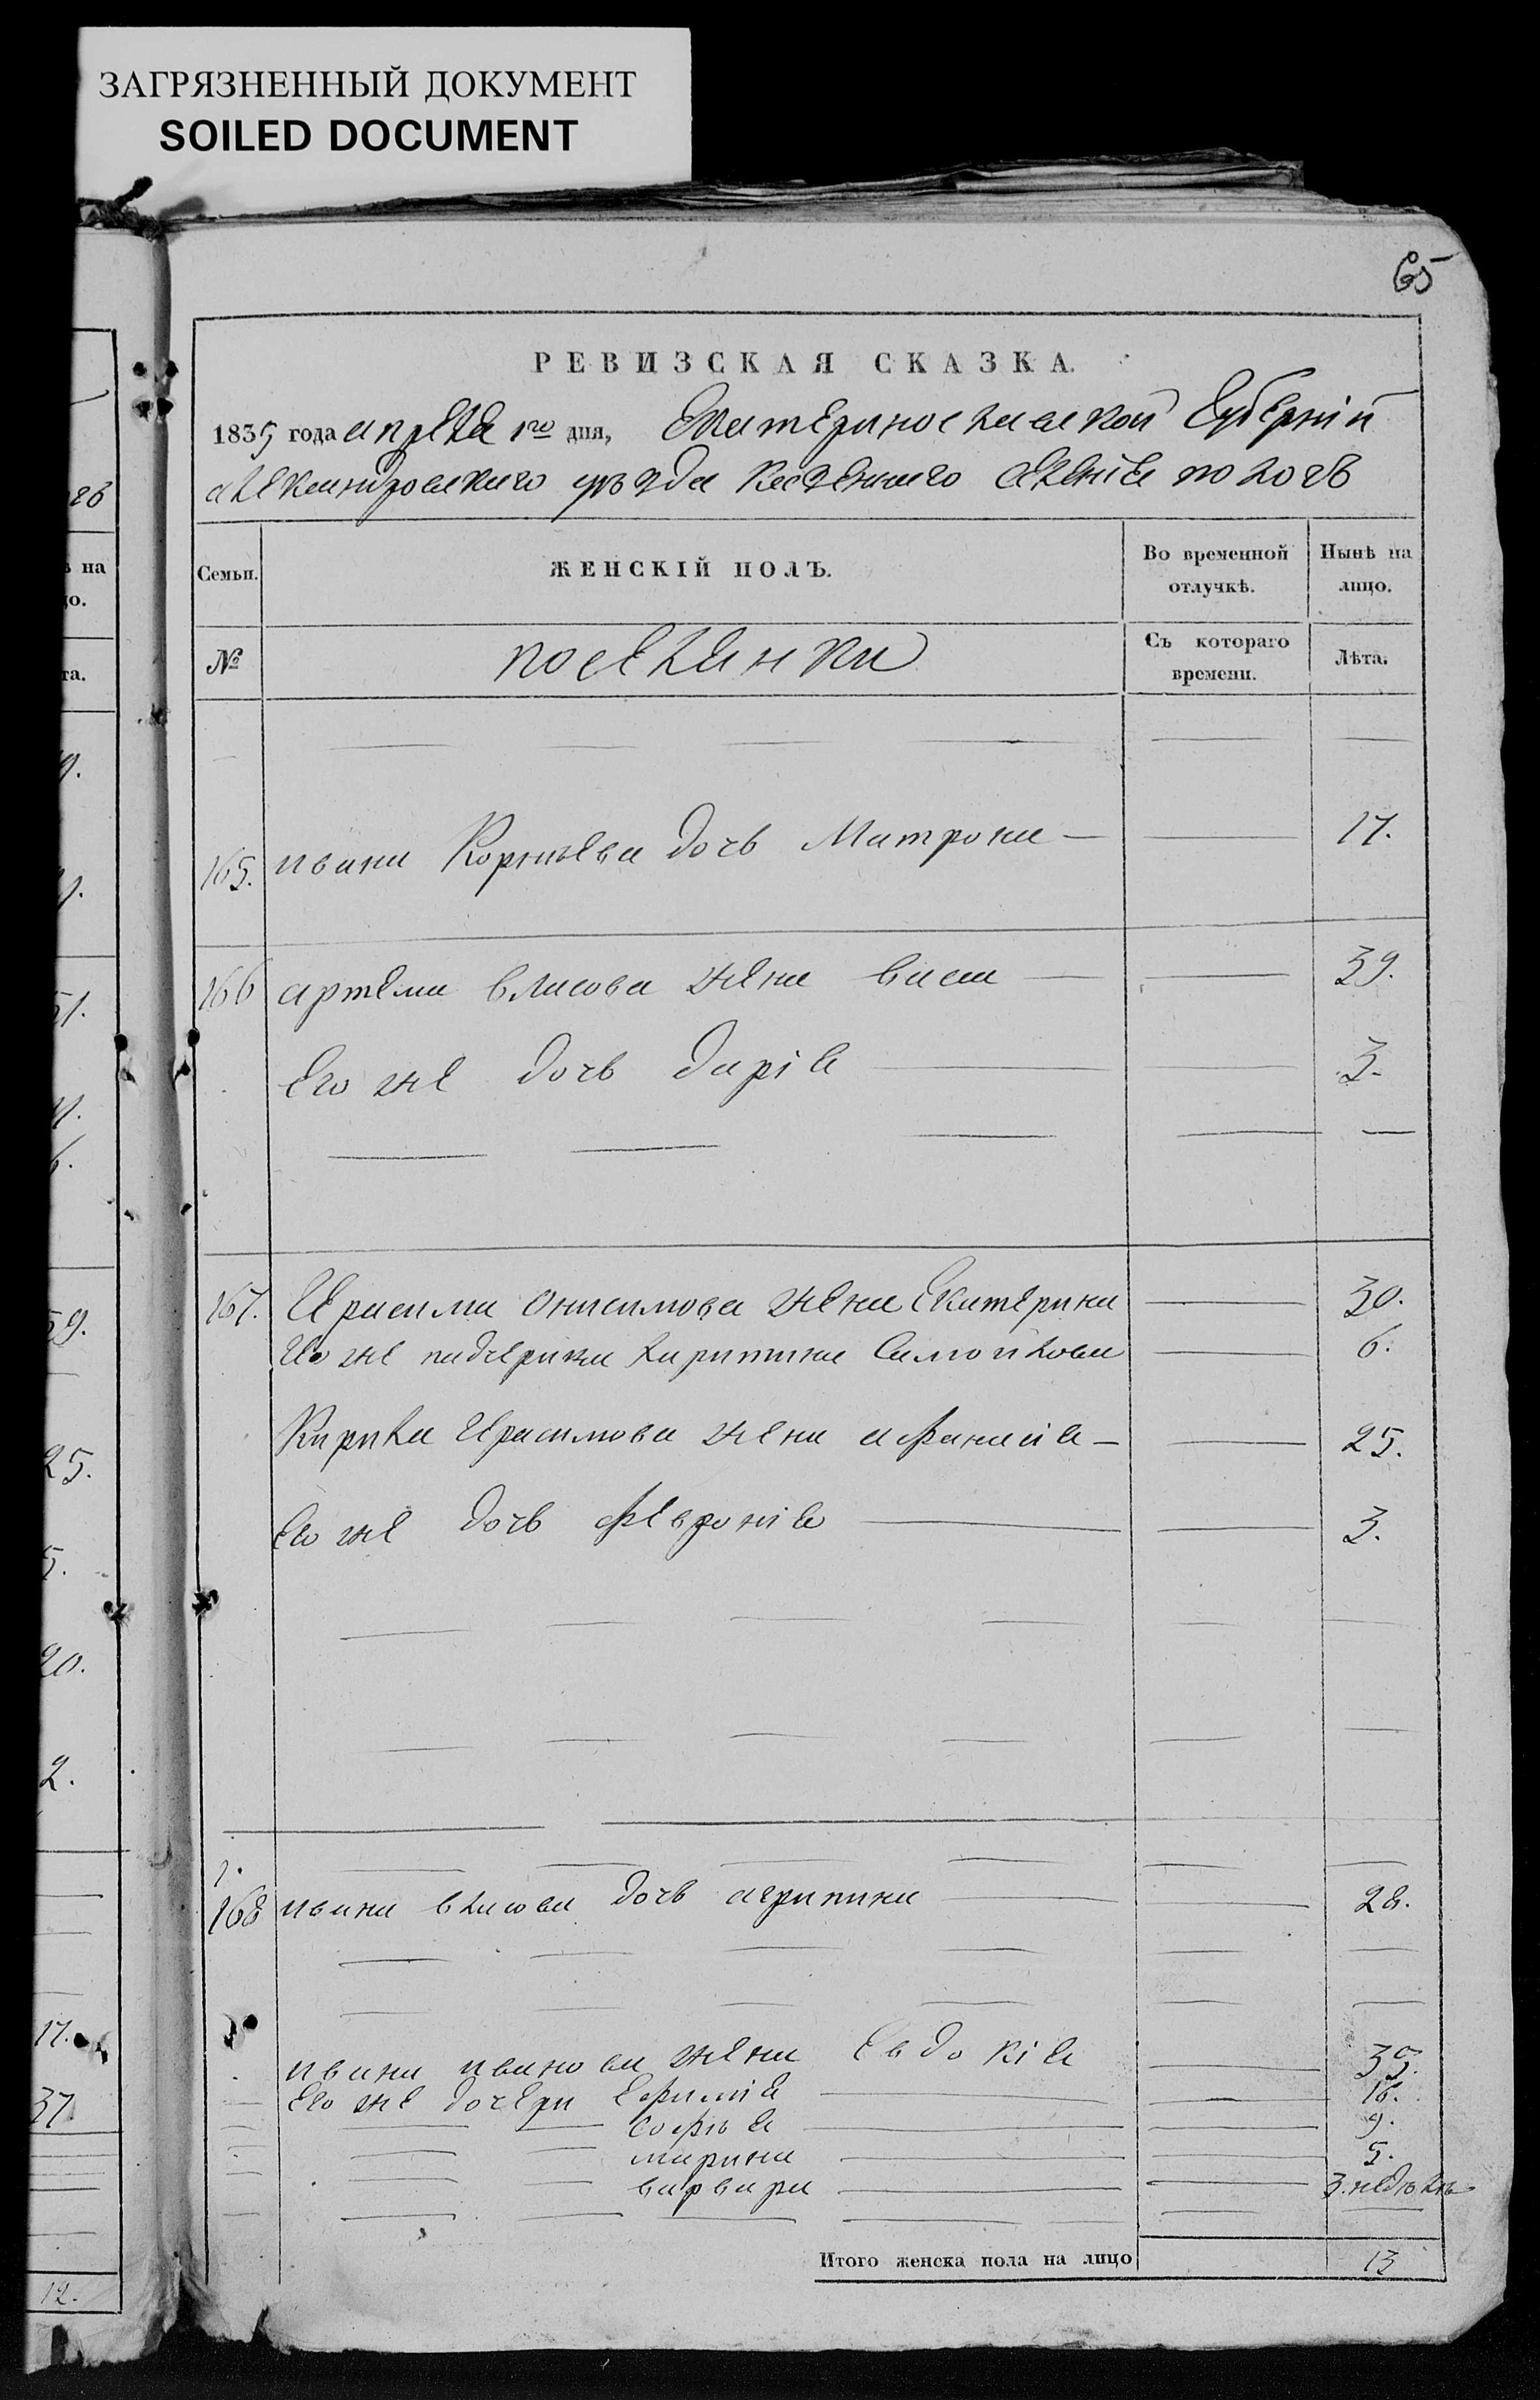 ЗАГРЯЗНЕННЫЙ ДОКУМЕНТ
SOILED DOCUMENT
65
РЕВИЗСКАЯ СКАЗКА.
1835 года апреля 1го дня, Екатеринославской Губернiи
александровскаго уезда казеннаго селенiя пологъ
Семьи.
ЖЕНСКІЙ ПОЛЪ.
Во временной отлучкѣ.
Нынѣ на лицо.
№
поселянки
Съ котораго времени.
Лѣта.
165. ивана Корнѣева дочь Матрона 17.
166 артема власова жена васа 39.
Его же дочь дарiя 3.
167. Герасима Онисимова жена Екатерина 30.
Его же падчерика Самойлова 6.
Кирила Герасимова жена афанасiя 25.
Его же дочь февронiя 3.
1.
168 ивана власова дочь агрипина 28.
ивана иванова жена Евдокiя 35.
Его же дочери Ефимiя 16.
софья 9.
марина 5.
варвара 3. недѣль
Итого женска пола на лицо 13